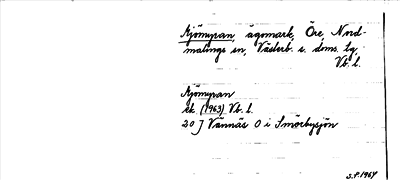 Kjömyran, ägomark, Öre, Nord-
malings sn, Västerb. s. doms. tg,
Vb. l.
Kjömyran
ek. (1963) Vb. l.
20 J Vännäs O i Smörbysjön
S.P. 1964